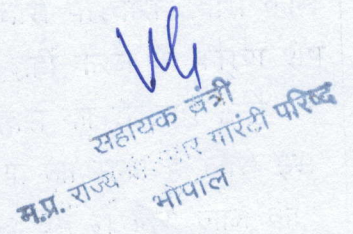 सहायक यंत्री
म.प्र. राज्य रोजगार गारंटी परिषद
भोपाल